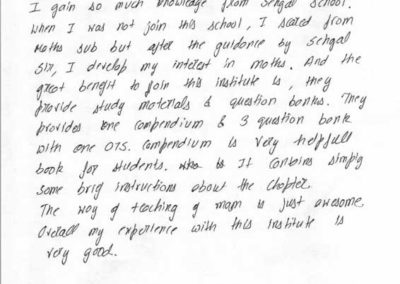 I gain so much knowledge from Sehgal School.
When I was not join this school, I scared from
Maths sub but after the guidance by Sehgal
Sir, I develop my interest in maths. And the
great benefit to join this institute is, they
provide study materials & question banks. They
provides one compendium & 3 question bank
with one OTS. Compendium is very helpfull
book for students. It contains
some brief instructions about the chapter.
The way of teaching of mam is just awesome.
Overall my experience with this institute is
very good.